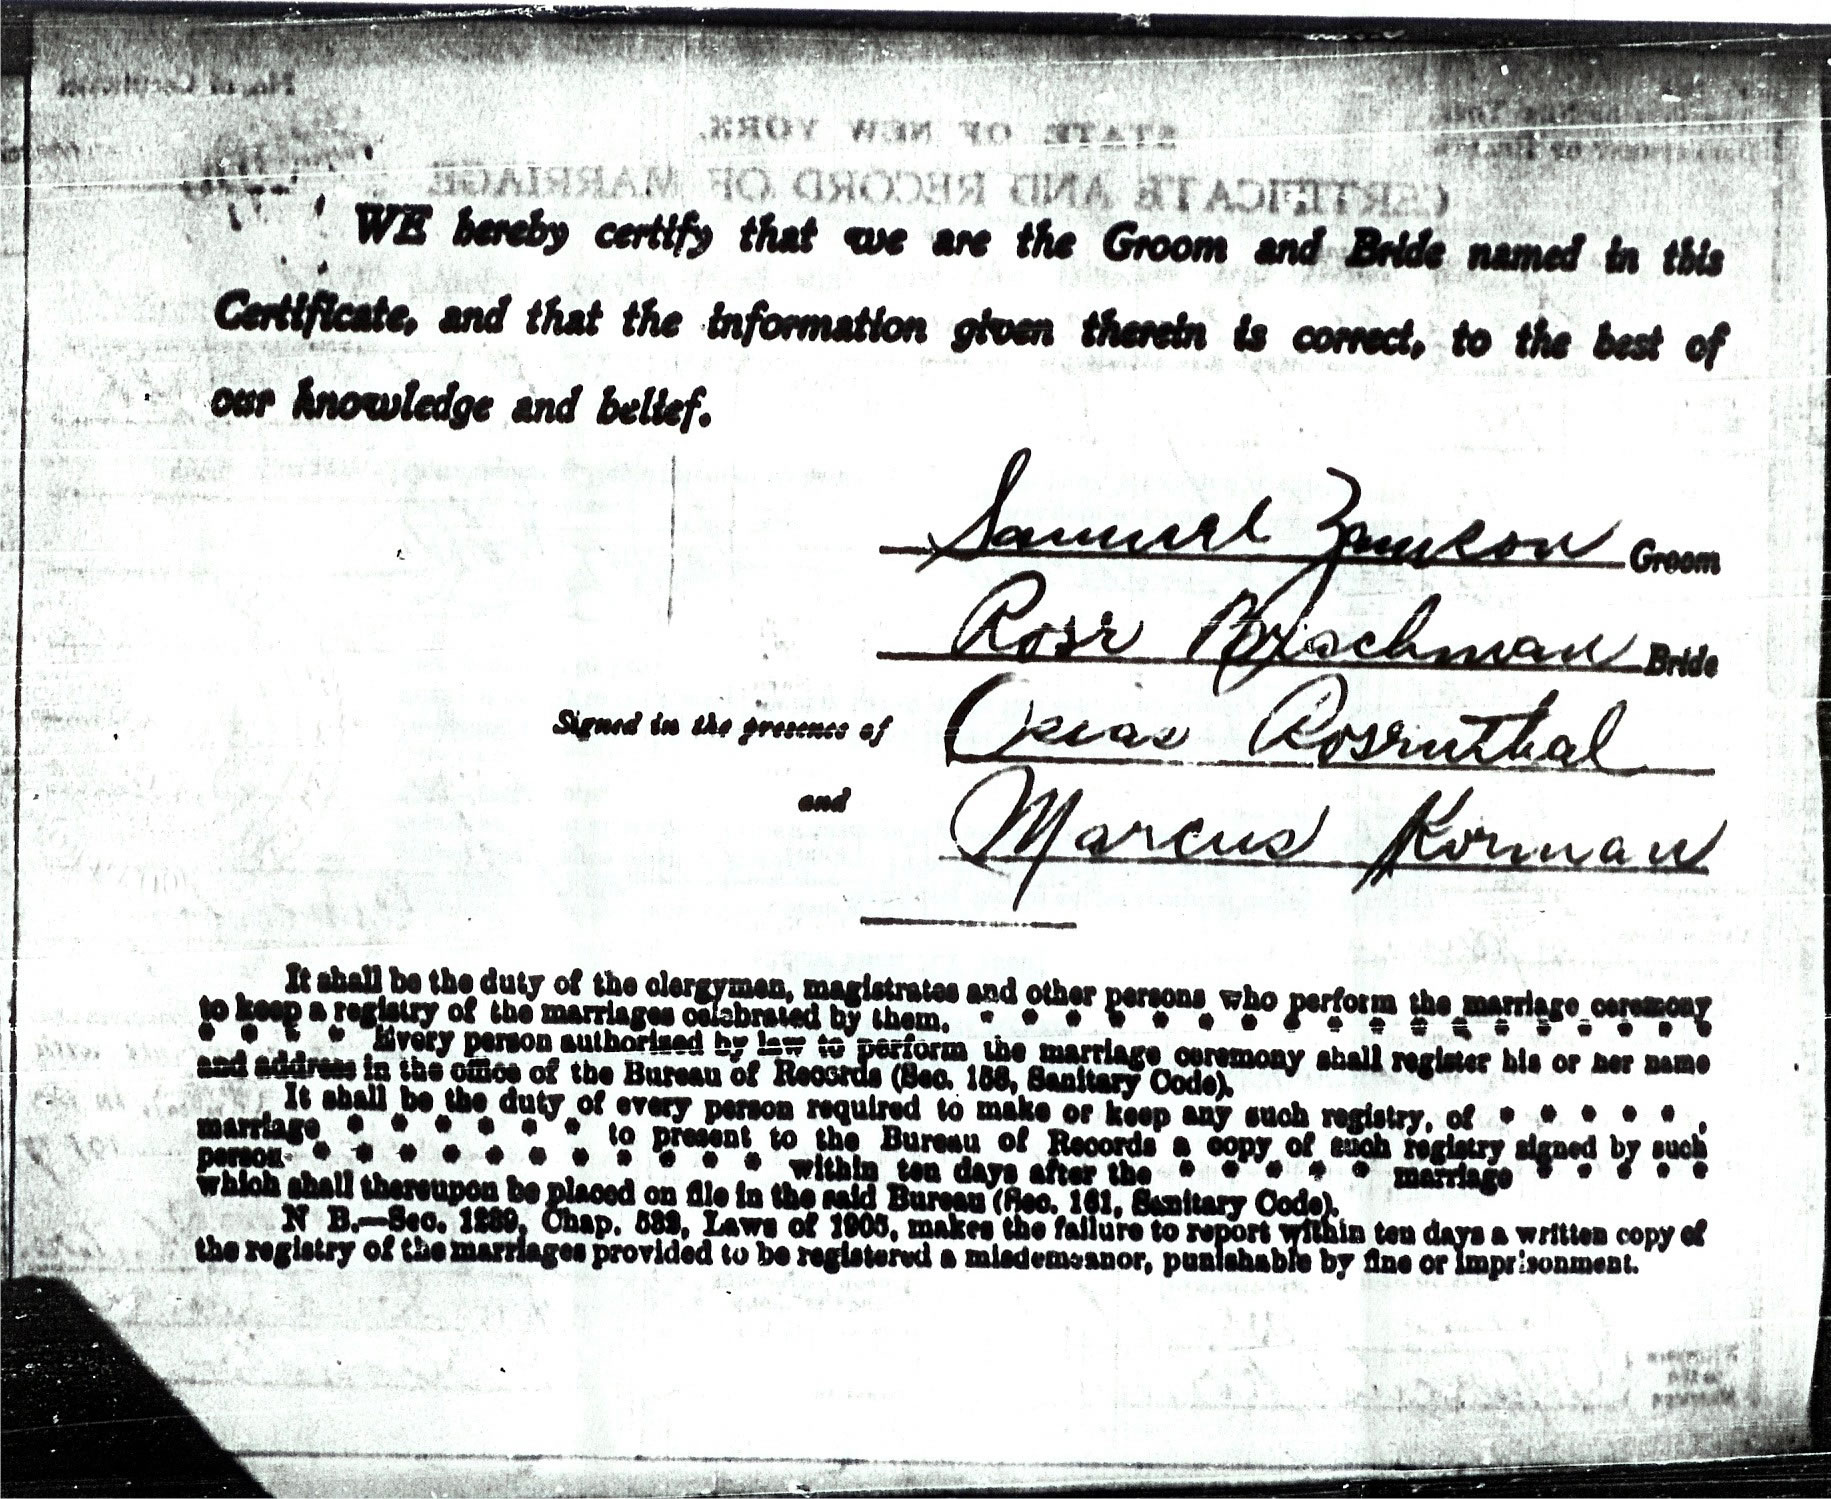 STATE OF NEW YORK.
CERTIFICATE AND RECORD OF MARRIAGE
WE hereby certify that we are the Groom and Bride named in this
Certificate, and that the information given therein is correct, to the best of
our knowledge and belief.
Samuel Zamkow Groom
Rose Brischman Bride
Signed in the presence of Rosenthal
and Marcus Korman
It shall be the duty of the clergymen, magistrates and other persons who perform the marriage ceremony
to keep a registry of the marriages celebrated by them. * * * * * * * * * * * * * * * * *
* * * * Every person authorized by law to perform the marriage ceremony shall register his or her name
and address in the office of the Bureau of Records (Sec. 158, Sanitary Code).
It shall be the duty of every person required to make or keep any such registry, of * * * * * ,
marriage * * * * * * to present to the Bureau of Records a copy of such registry signed by such
person * * * * * * * * * * * within ten days after the * * * * * marriage * * * * *
which shall thereupon be placed on file in the said Bureau (Sec. 161, Sanitary Code).
N B.—Sec. 1239, Chap. 532, Laws of 1905, makes the failure to report within ten days a written copy of
the registry of the marriages provided to be registered a misdemeanor, punishable by fine or imprisonment.